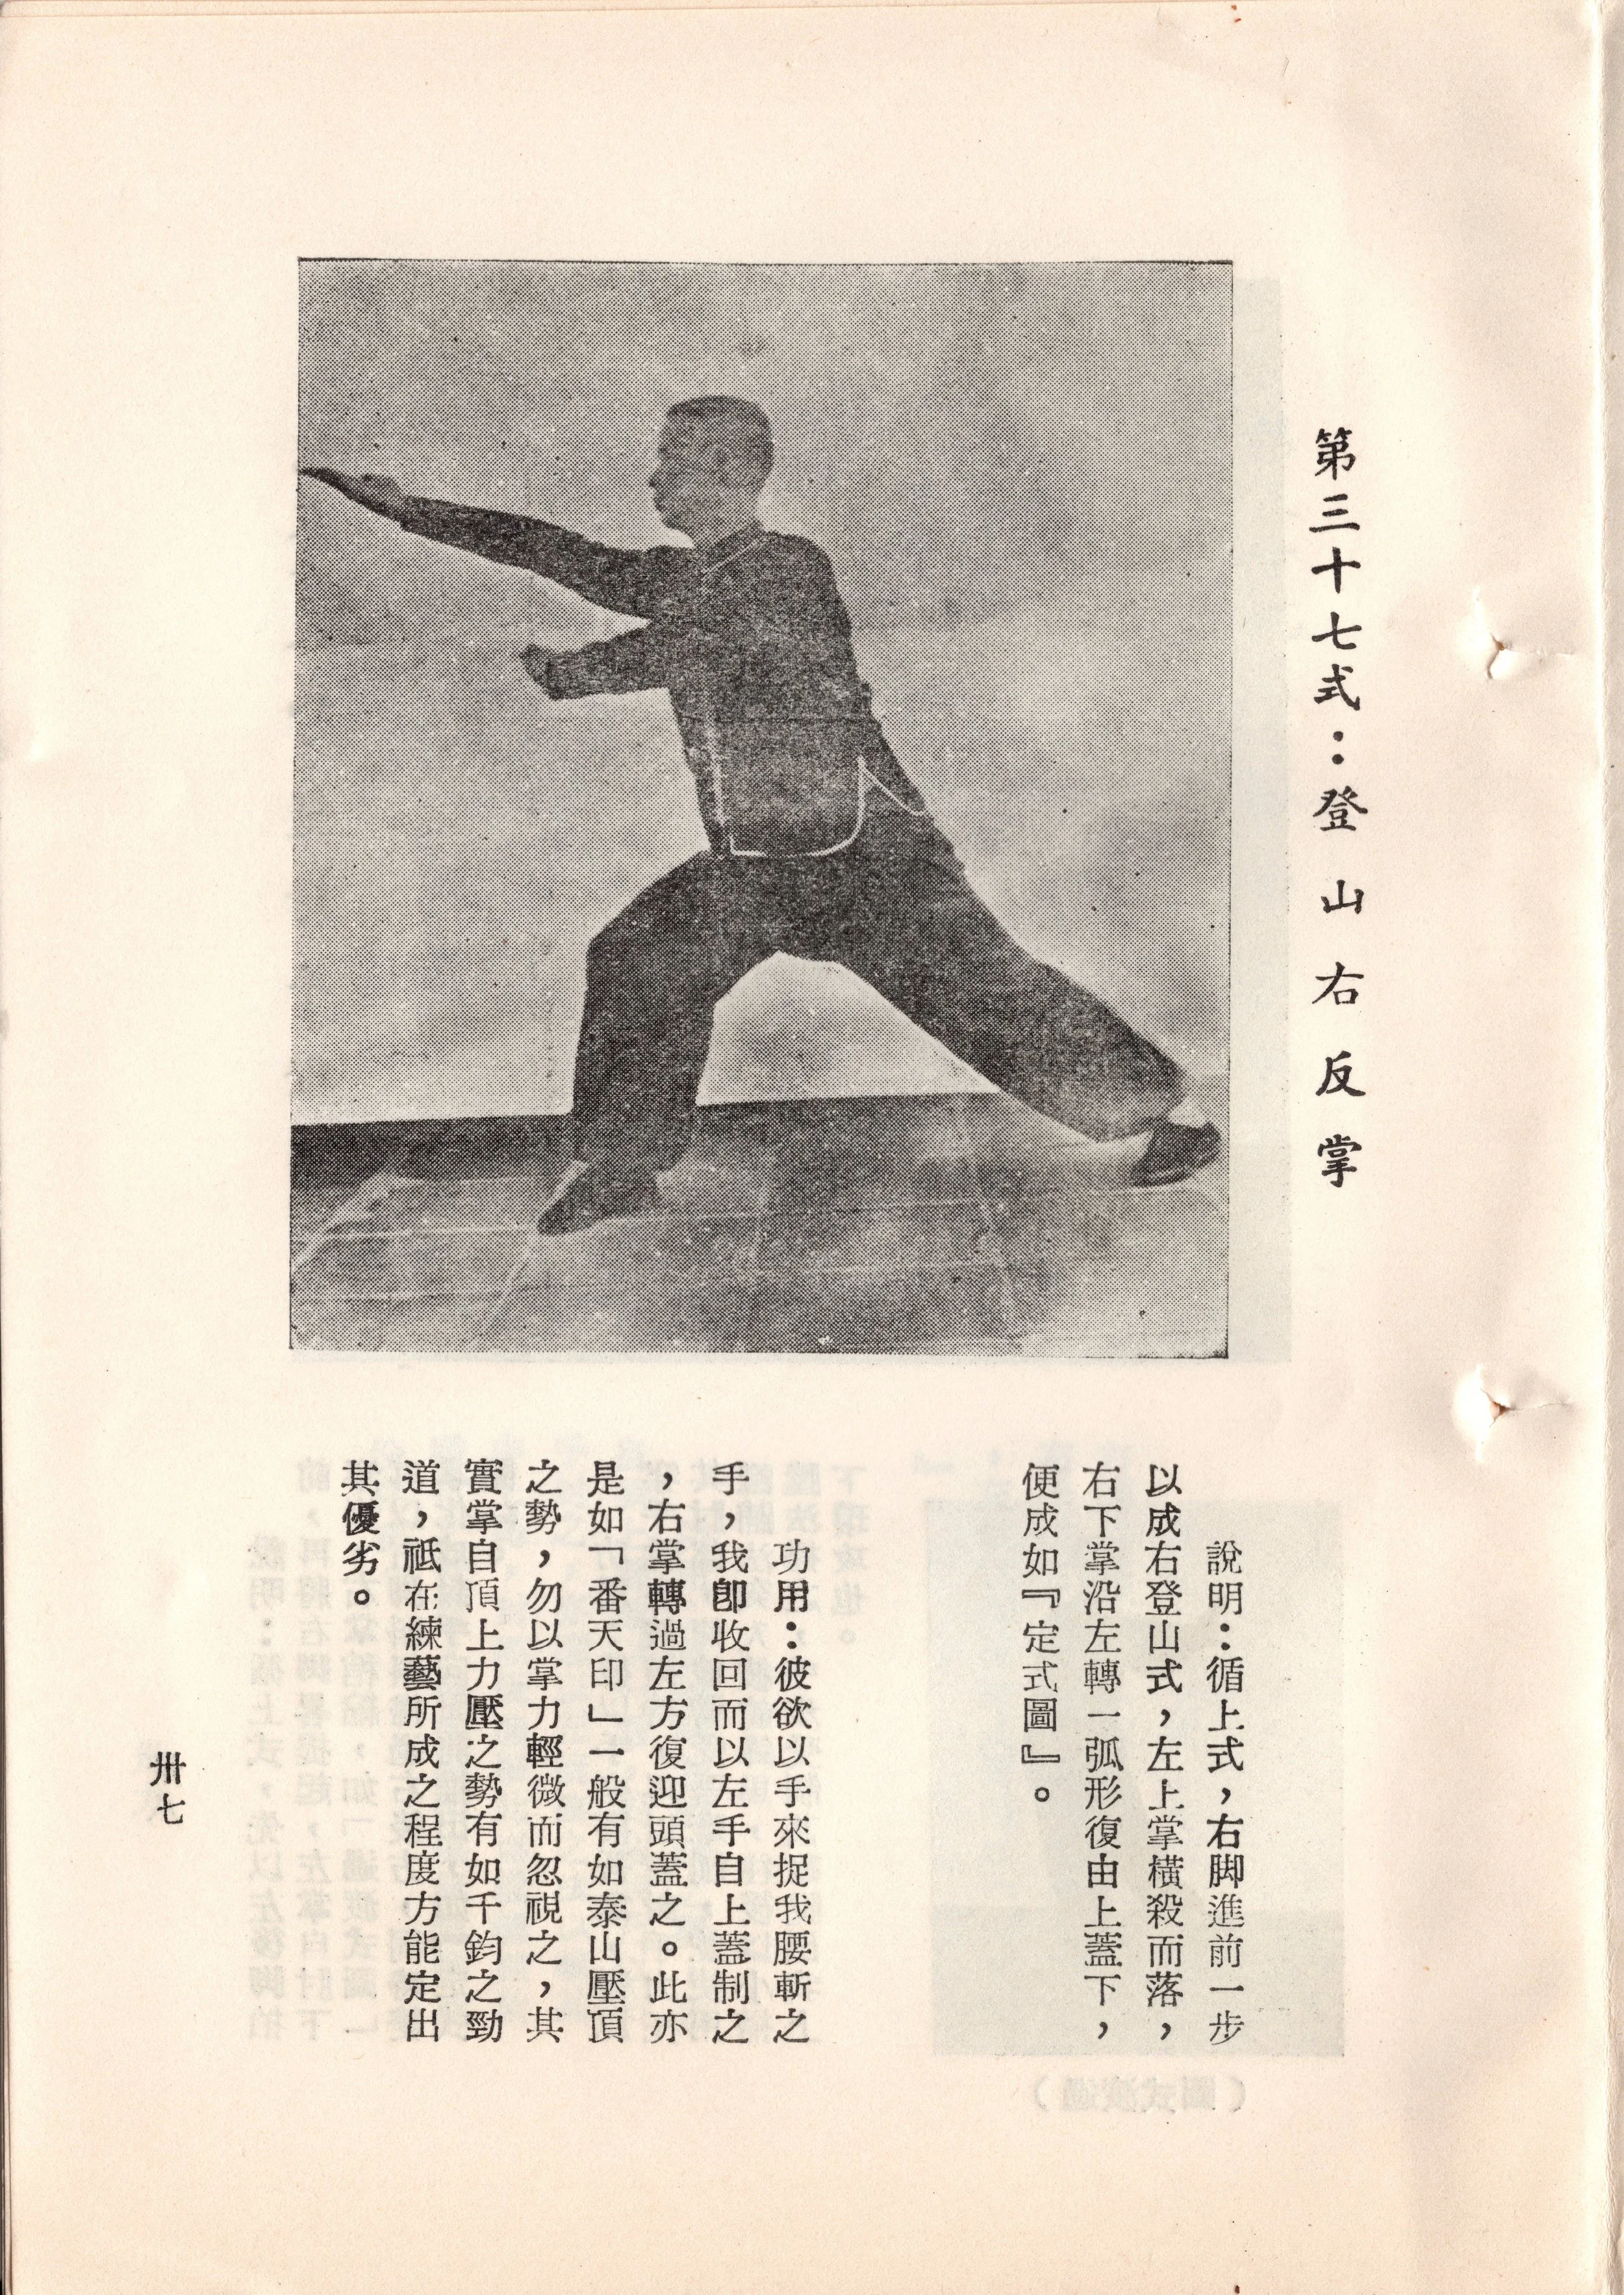 第三十七式：登山右反掌
說明：循上式，右脚進前一步
以成右登山式，左上掌橫殺而落，
右下掌沿左轉一弧形復由上蓋下，
便成如『定式圖』。
功用：彼欲以手來捉我腰斬之
手，我卽收回而以左手自上蓋制之
，右掌轉過左方復迎頭蓋之。此亦
是如「番天印」一般有如泰山壓頂
之勢，勿以掌力輕微而忽視之，其
實掌自頂上力壓之勢有如千鈞之勁
道，祗在練藝所成之程度方能定出
其優劣。
卅七